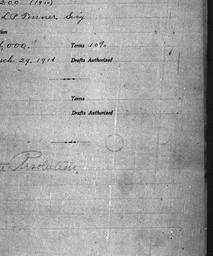 200 (1910)
L P Tenner, Secy
tion
6,000. Terms 10%
rch 29, 1916 Drafts Authorized
Terms
Drafts Authorized
Resolution